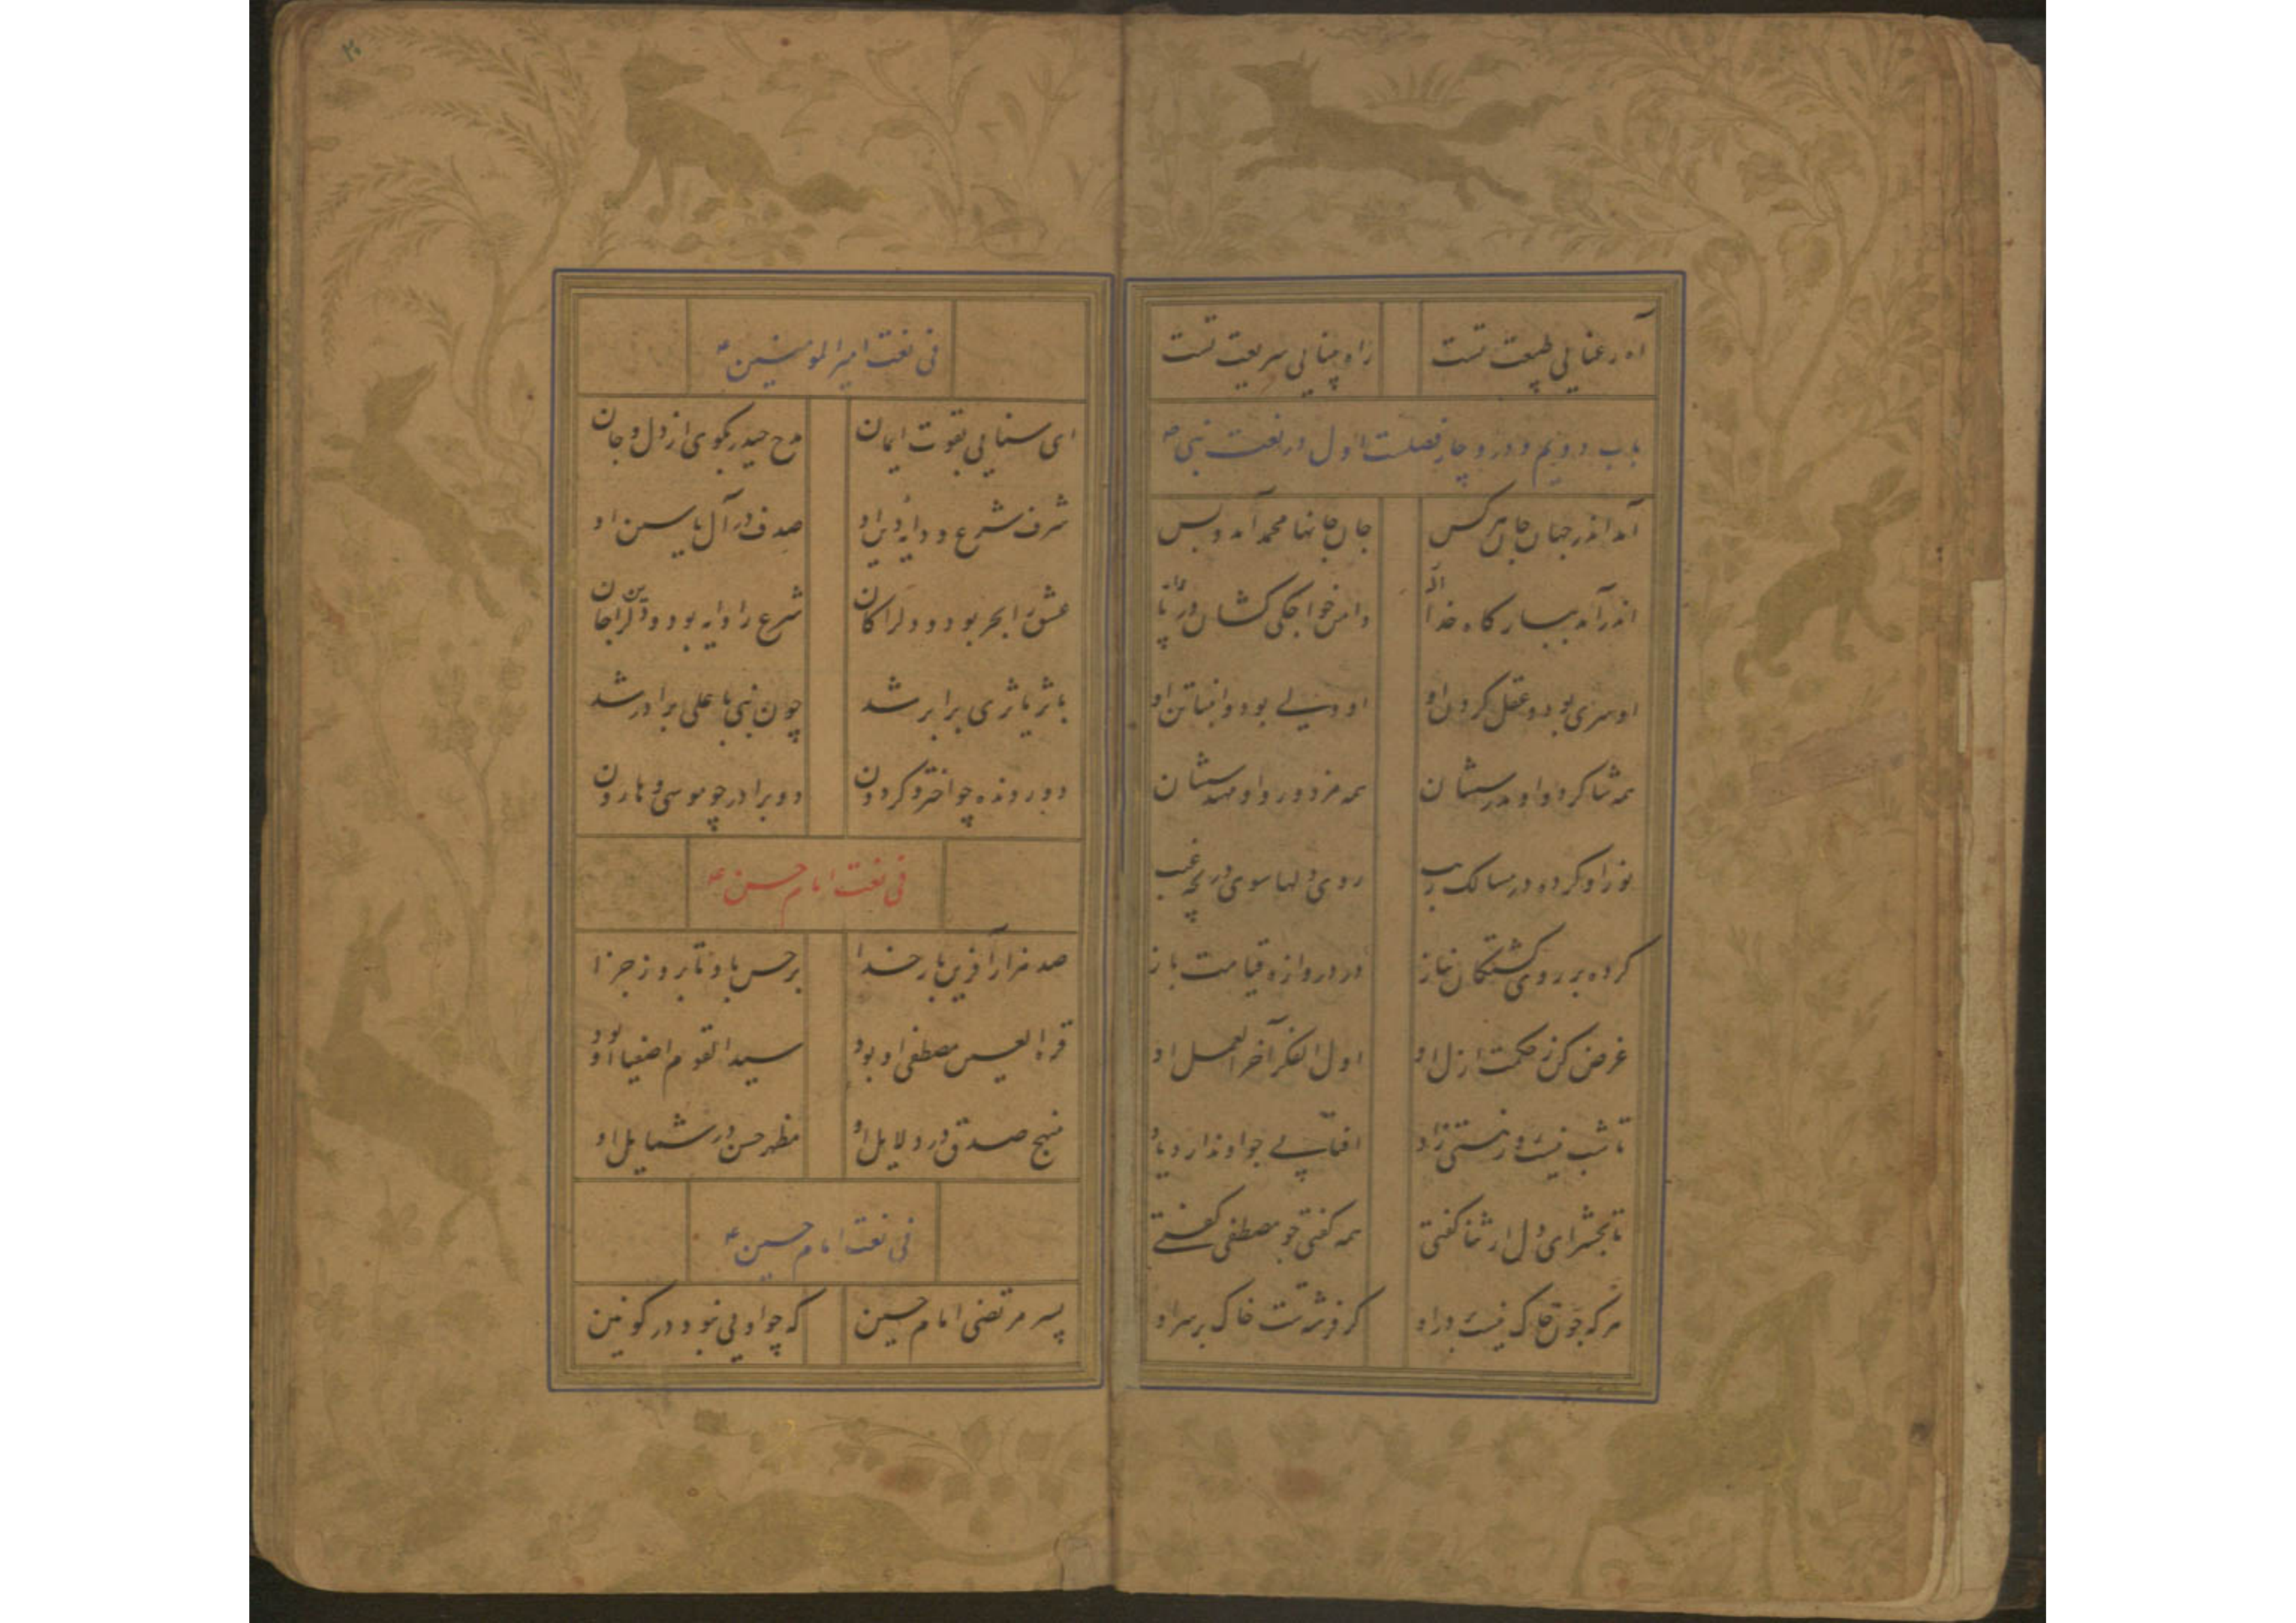 آه رعنایی طبیعت تست راه بینایی شریعت تست
باب دویم و در و چار فصلست اول در نعت نبی ص
آمد اندر جهان جان هر کس جان جانها محمد آمد و بس
اندر آمد ببارگاه خدای دامن خواجگی کشان در پای
او سری بود و عقل کردن او او دلی بود و انبیا تن او
همه شاکرد و او مدرسشان همه مزدور و او مهندسشان
نور او کرده در مسالک ریب روی دلها سوی دریچه غیب
کرده بر روی کشتکان نیاز در دروازه قیامت باز
غرض کن ز حکمت ازل او اول الفکر آخر العمل او
تا شب نیست روز هستی زاد افتابی چو او ندارد یاد
تا بحشر ای دل ار ثنا کفتی همه کفتی چو مصطفی کفتی
هر که چون خاک نیست بر در او کر فرشتست خاک بر سر او
فی نعت امیر المومنین ع
ای سنایی بقوت ایمان مدح حیدر بکوی از دل و جان
شرف شرع و دایه دین او صدف در آل یاسین او
عشق را بحر بود و دل را کان شرع را دایه بود و دین را جان
باثریا ثری برابر شد چون نبی با علی برادر شد
دو رونده چو اختر و کردون دو برادر چو موسی و هارون
فی نعت امام حسن ع
صد هزار آفرین بار خدا بر حسن باد تا بروز جزا
قرة العین مصطفی او بود سید القوم اصفیا او بود
منهج صدق در دلایل او مظهر حسن در شمایل او
فی نعت امام حسین ع
پسر مرتضی امام حسین که چو اویی نبود در کونین
۲۰